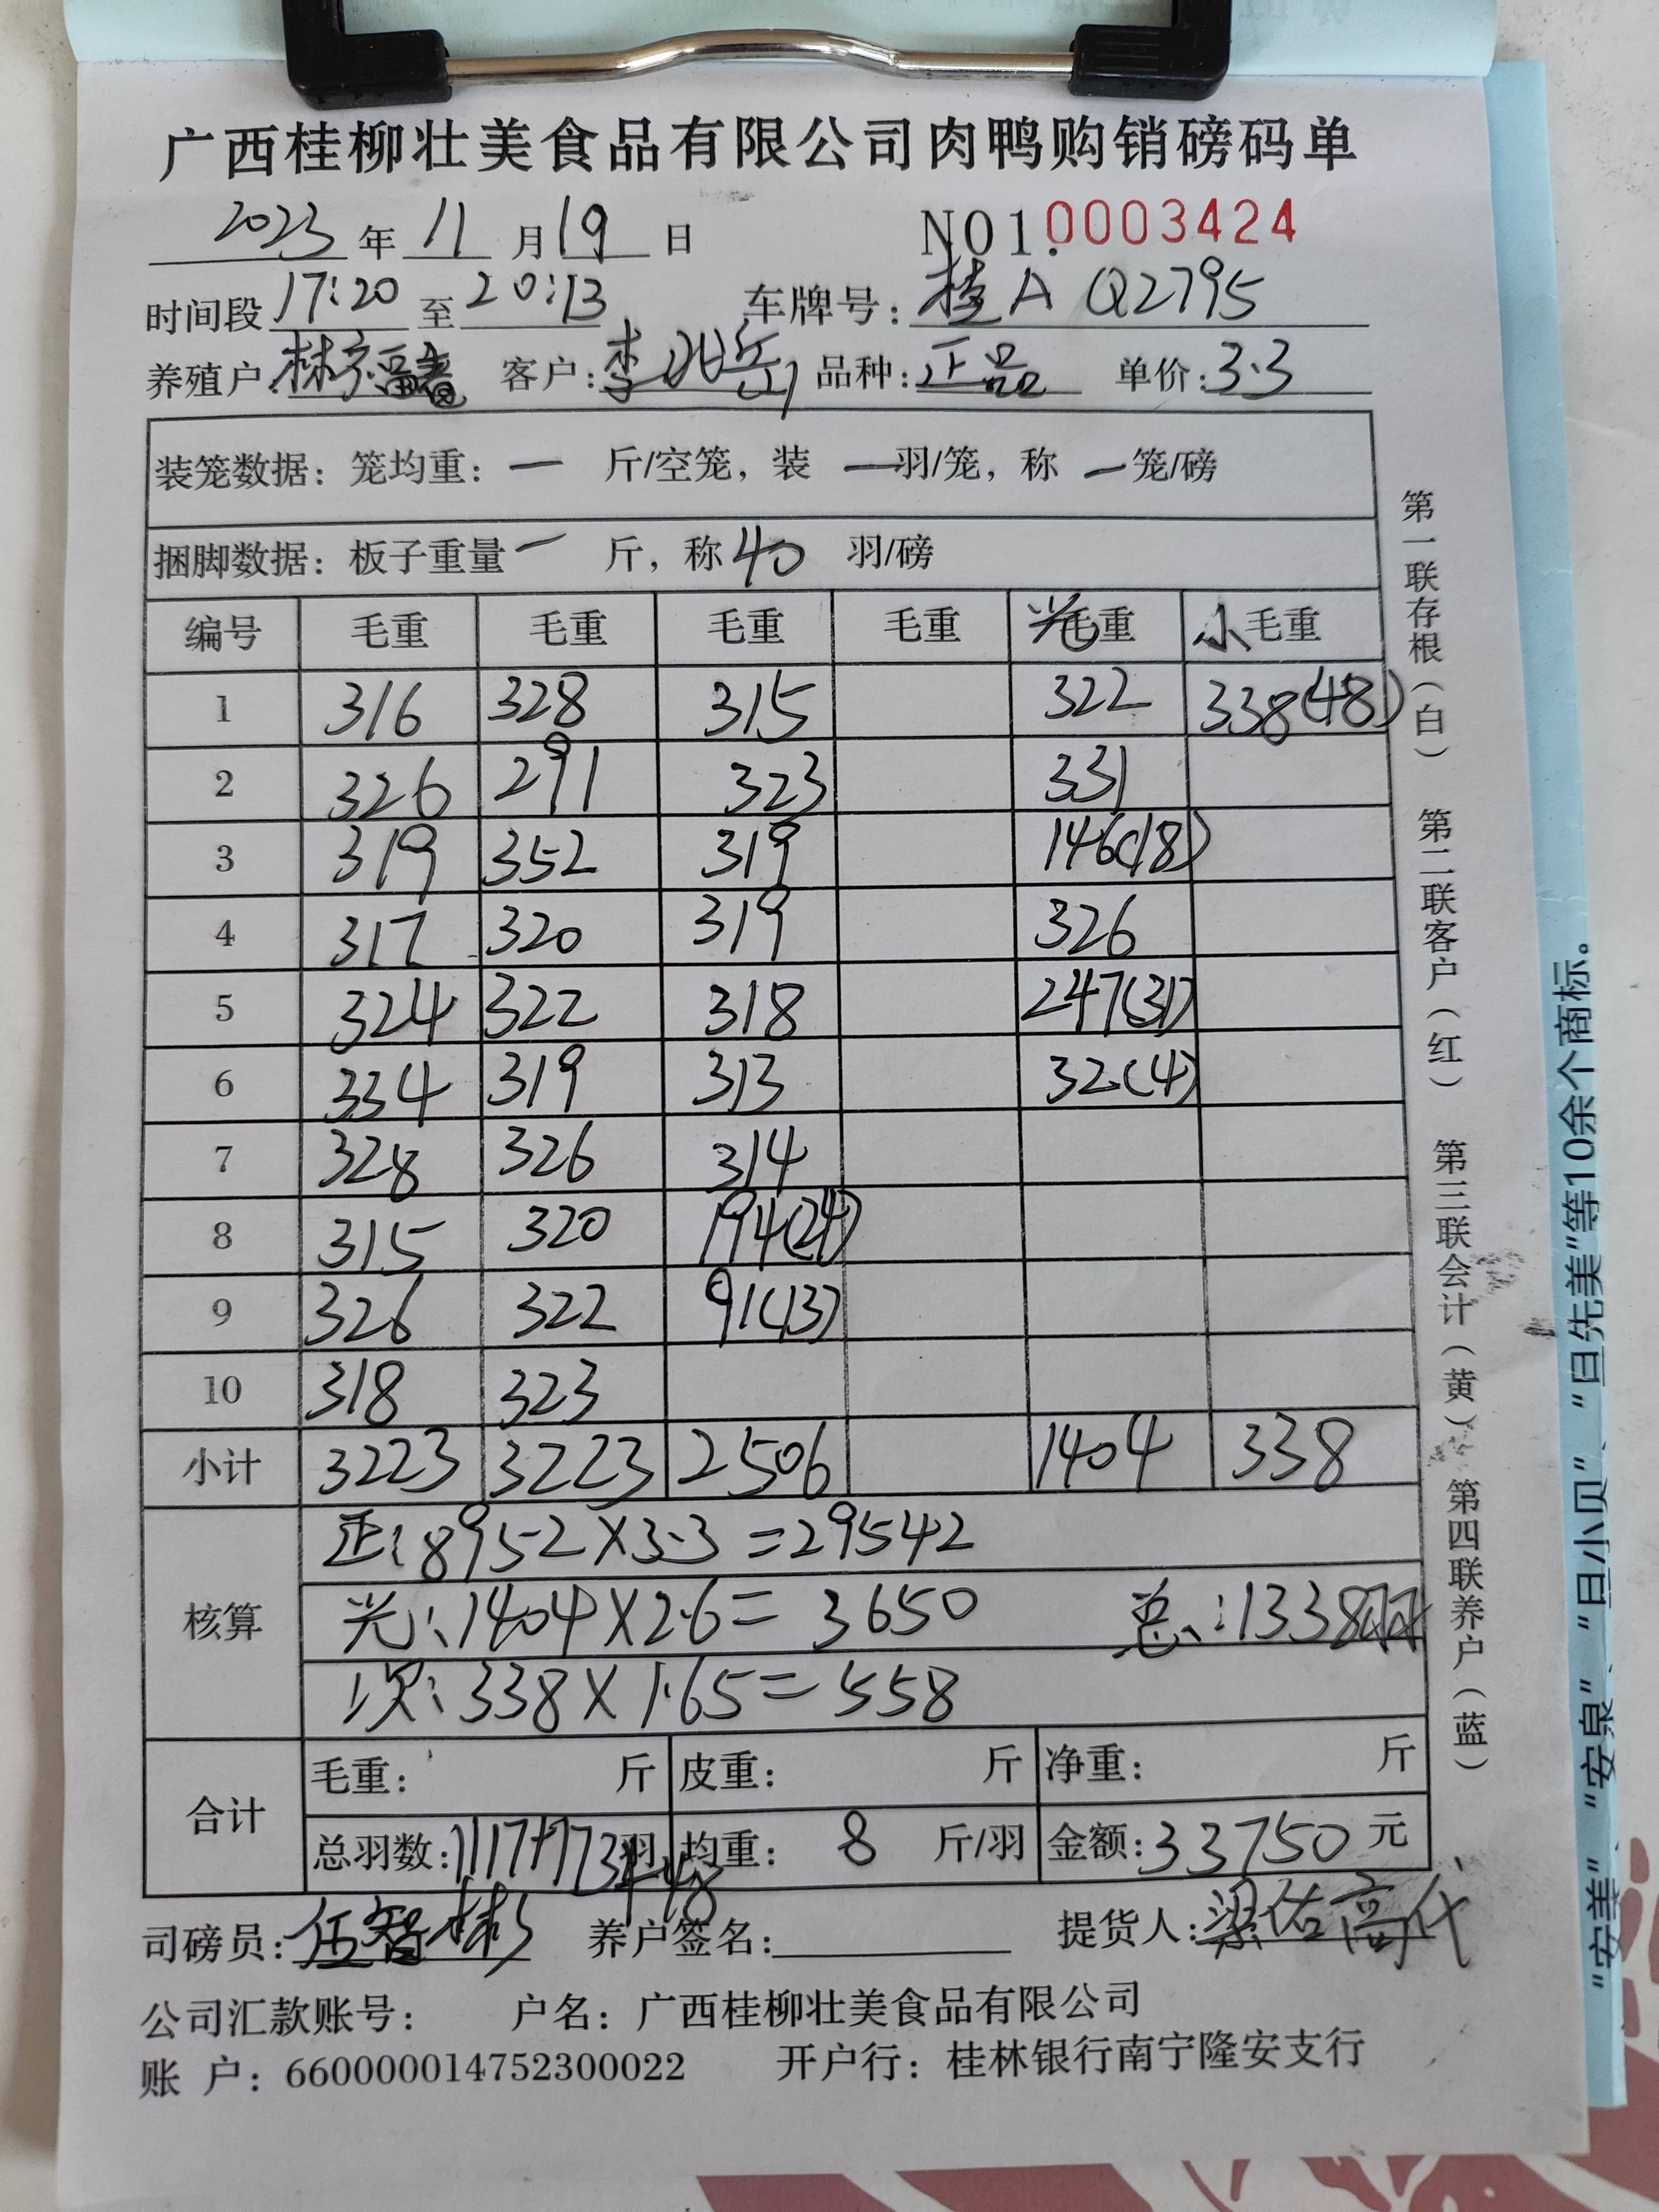 广西桂柳壮美食品有限公司肉鸭购销磅码单
2023年 11月19日 NO1.0003424
时间段17:20至20:13 车牌号:桂A Q2795
养殖户: 客户:李 品种:正品 单价:3.3
装笼数据:笼均重:一 斤/空笼,装 一羽/笼,称 一笼/磅
捆脚数据:板子重量一 斤,称40 羽/磅
编号 毛重 毛重 毛重 毛重 光毛重 小毛重
1 316 328 315 322 338(48)
2 326 291 323 331
3 319 352 319 146(18)
4 317 320 319 326
5 324 322 318 247(31)
6 334 319 313 32(4)
7 328 326 314
8 315 320 194(24)
9 326 322 91(13)
10 318 323
小计 3223 3223 2506 1404 338
核算
正:8952×3.3=29542
光:1404×2.6=3650 总:1338羽
次:338×1.65=558
合计
毛重: 斤 皮重: 斤 净重: 斤
总羽数:1117+173羽 均重: 8 斤/羽 金额:33750元
+48
司磅员:伍智彬 养户签名: 提货人:梁佑高代
公司汇款账号: 户名:广西桂柳壮美食品有限公司
账 户:660000014752300022 开户行:桂林银行南宁隆安支行
第一联存根(白) 第二联客户(红) 第三联会计(黄) 第四联养户(蓝)
"安美"、"安泉"、"旦小贝"、"旦先美"等10余个商标。